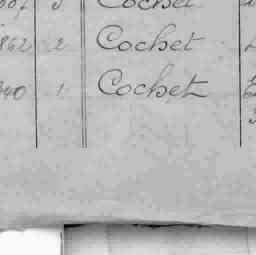 Cochet
862 2 Cochet
940 1 Cochet